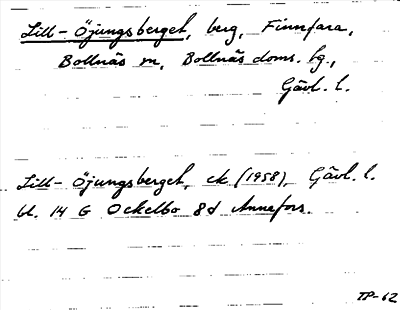 Lill-Öjungsberget, berg, Finnfara,
Bollnäs sn, Bollnäs doms. hg.,
Gävl. l.
Lill-Öjungsberget, ek (1958), Gävl. l.
bl. 14 G Ockelbo 8d Annefors.
TP-62